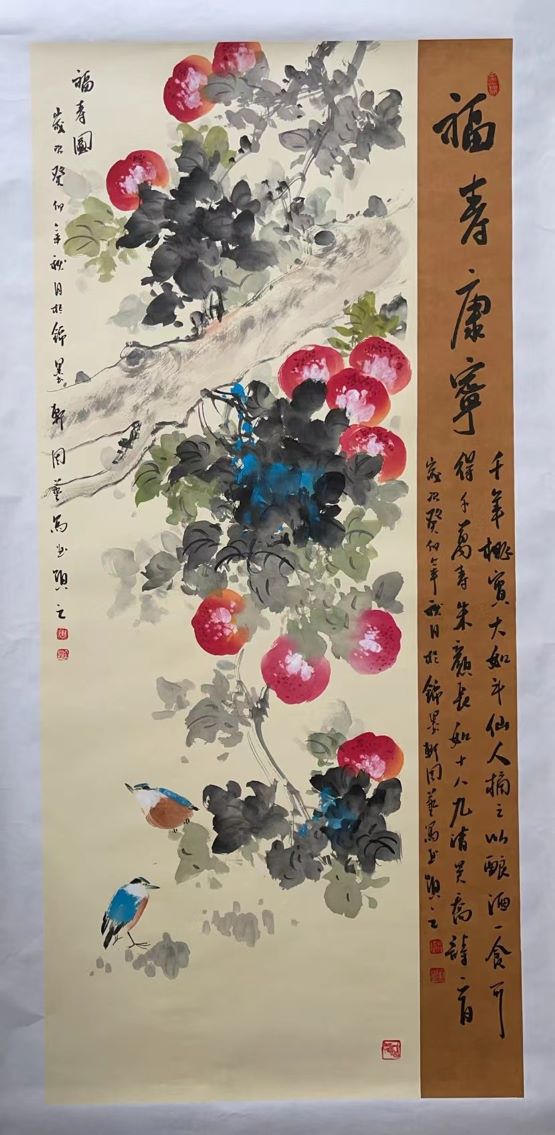 福寿康寧
千年桃實大如斗仙人摘之以酿酒一食可
得千萬寿朱顏長如十八九清吴喬詩一首
歲次癸卯年秋月於錦墨軒周藝寫題之
福寿圖
歲次癸卯年秋月於錦墨軒周藝寫題之